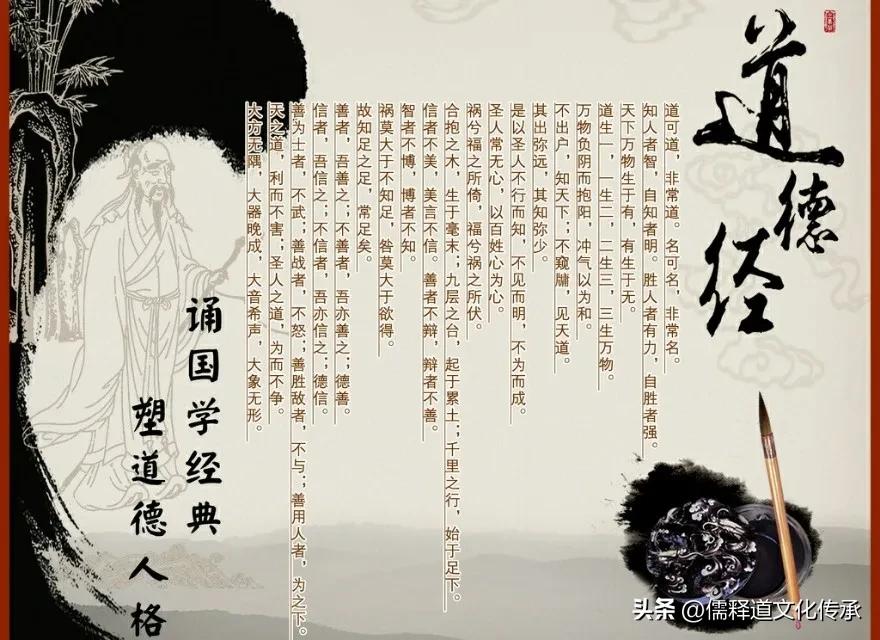 道德经
道可道，非常道。名可名，非常名。
知人者智，自知者明。胜人者有力，自胜者强。
天下万物生于有，有生于无。
道生一，一生二，二生三，三生万物。
万物负阴而抱阳，冲气以为和。
不出户，知天下；不窥牖，见天道。
其出弥远，其知弥少。
是以圣人不行而知，不见而明，不为而成。
圣人常无心，以百姓心为心。
祸兮福之所倚，福兮祸之所伏。
合抱之木，生于毫末；九层之台，起于累土；千里之行，始于足下。
信者不美，美言不信。善者不辩，辩者不善。
智者不博，博者不知。
祸莫大于不知足，咎莫大于欲得。
故知足之足，常足矣。
善者，吾善之；不善者，吾亦善之；德善。
信者，吾信之；不信者，吾亦信之；德信。
善为士者，不武；善战者，不怒；善胜敌者，不与；善用人者，为之下。
天之道，利而不害；圣人之道，为而不争。
大方无隅，大器晚成，大音希声，大象无形。
诵国学经典
塑道德人格
头条 @儒释道文化传承